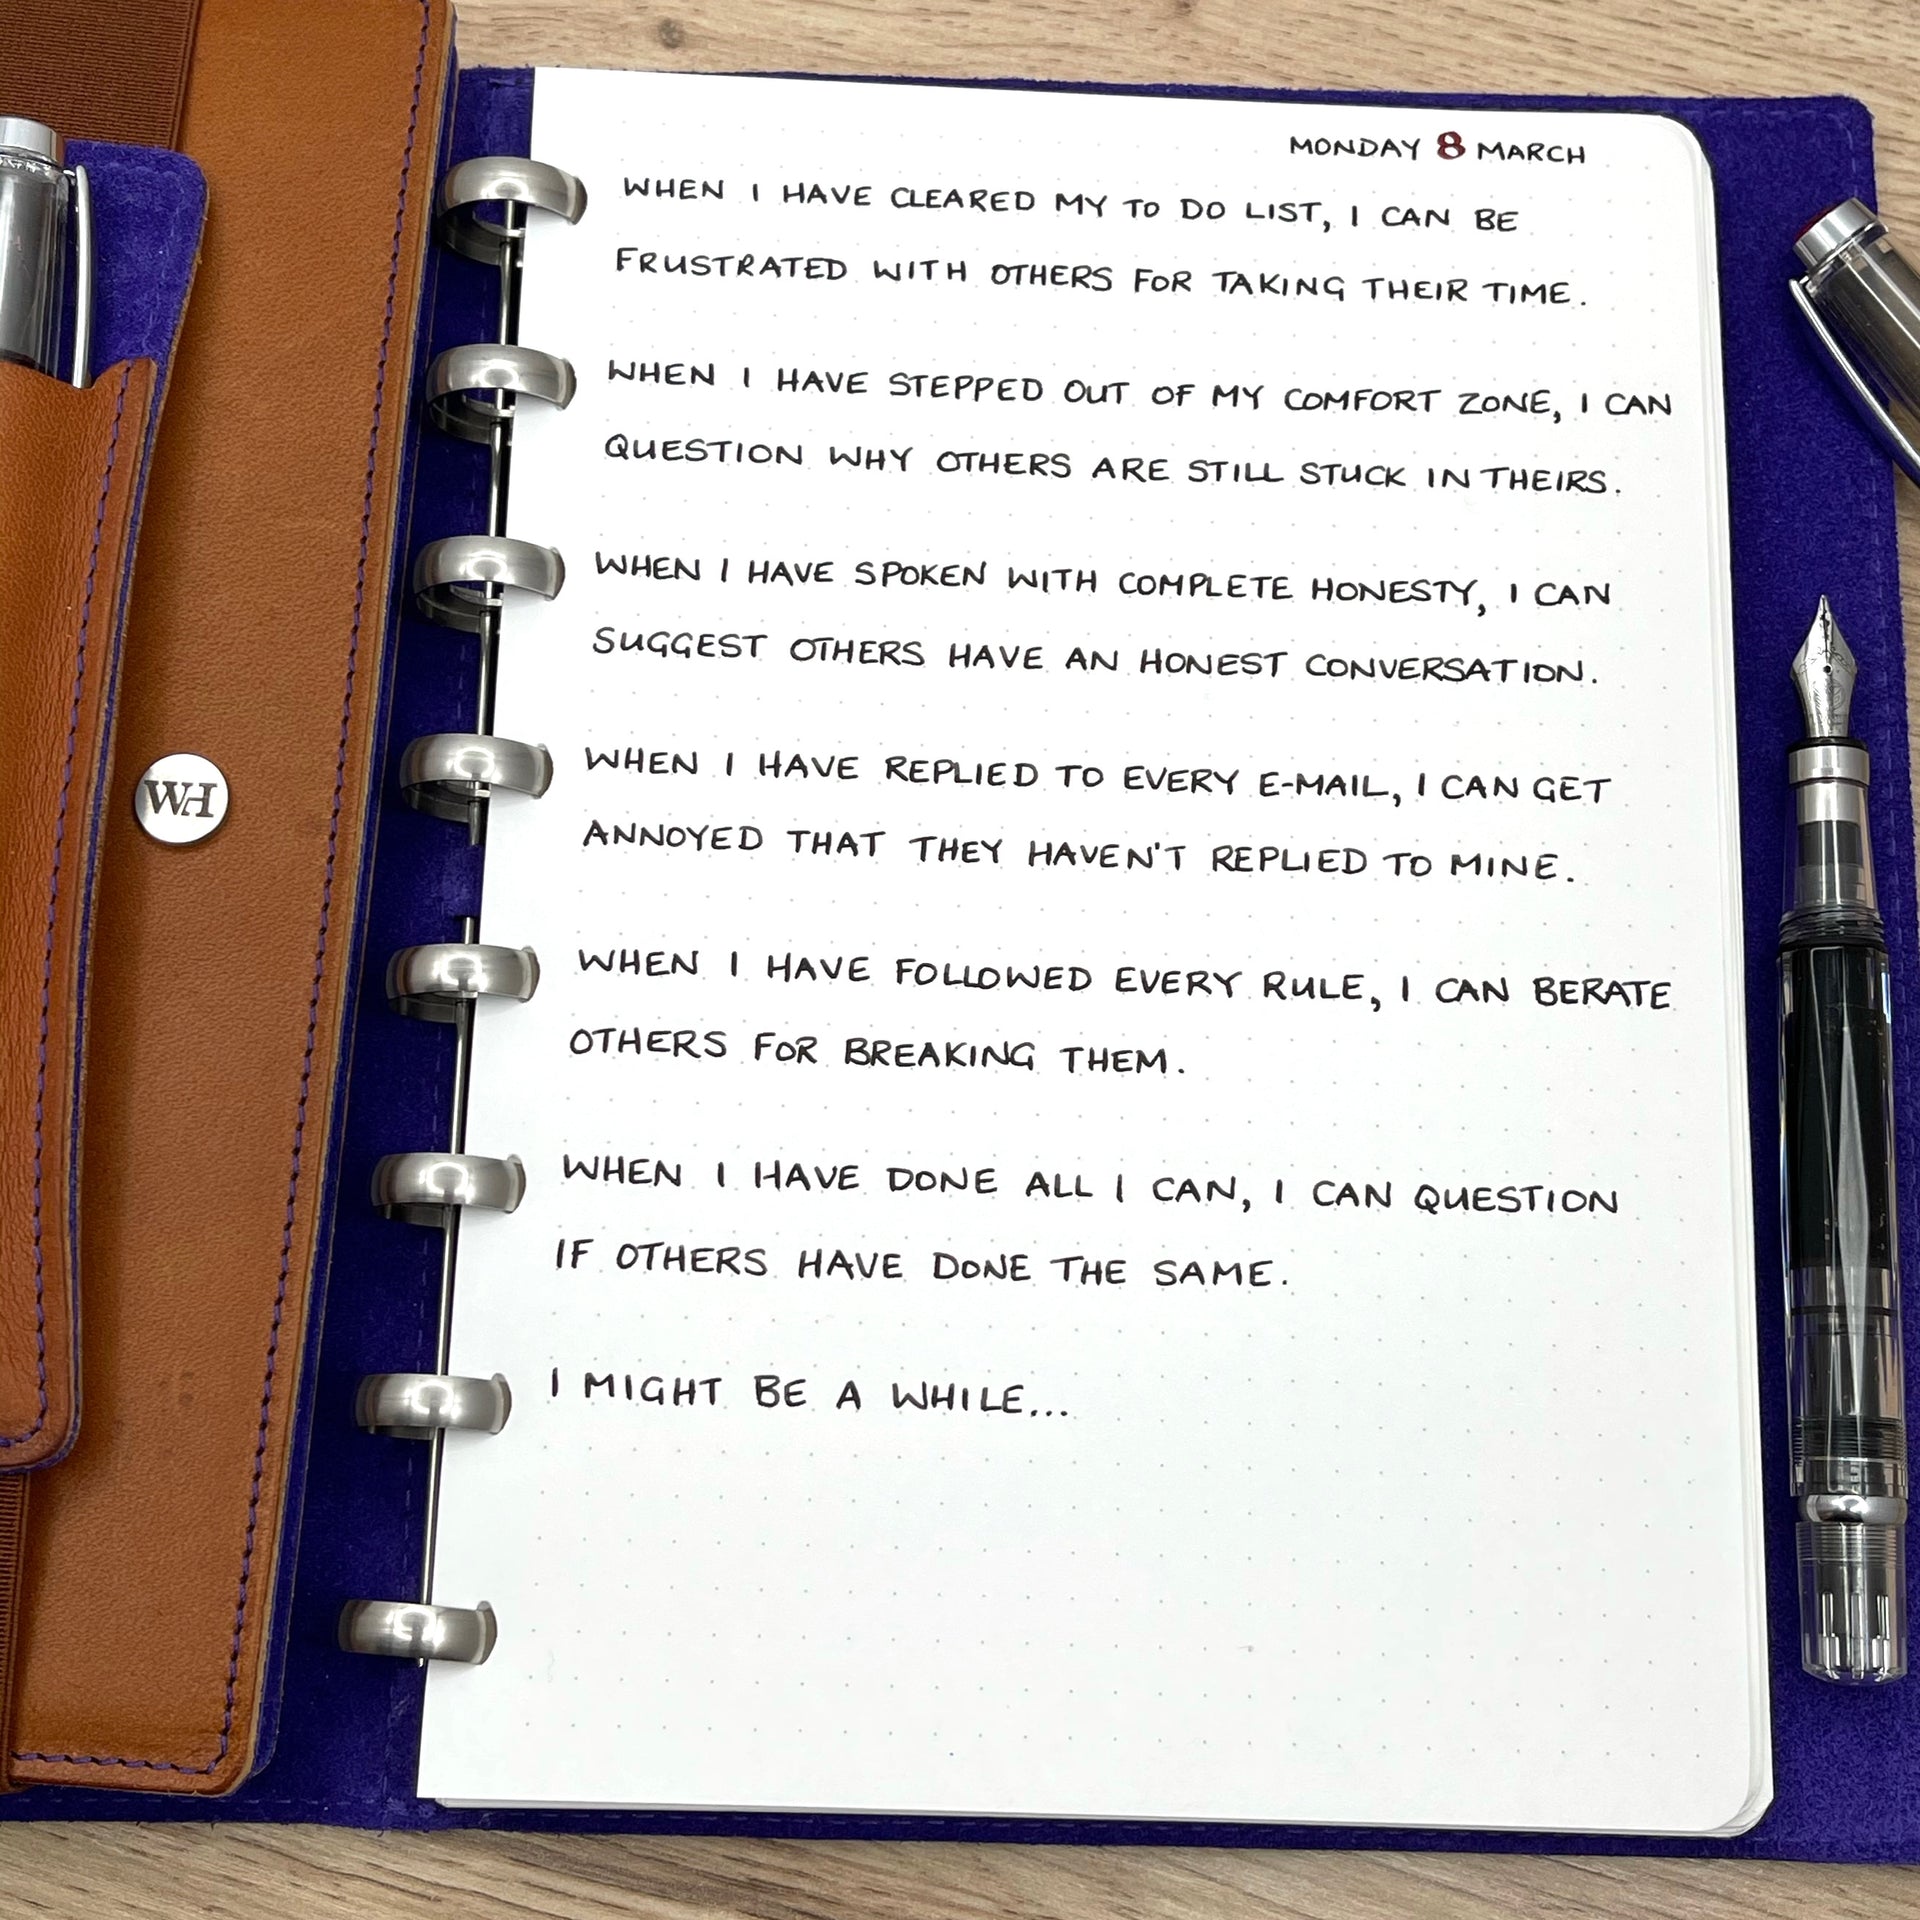 MONDAY 8 MARCH
WHEN I HAVE CLEARED MY TO DO LIST, I CAN BE
FRUSTRATED WITH OTHERS FOR TAKING THEIR TIME.
WHEN I HAVE STEPPED OUT OF MY COMFORT ZONE, I CAN
QUESTION WHY OTHERS ARE STILL STUCK IN THEIRS.
WHEN I HAVE SPOKEN WITH COMPLETE HONESTY, I CAN
SUGGEST OTHERS HAVE AN HONEST CONVERSATION.
WHEN I HAVE REPLIED TO EVERY E-MAIL, I CAN GET
ANNOYED THAT THEY HAVEN'T REPLIED TO MINE.
WHEN I HAVE FOLLOWED EVERY RULE, I CAN BERATE
OTHERS FOR BREAKING THEM.
WHEN I HAVE DONE ALL I CAN, I CAN QUESTION
IF OTHERS HAVE DONE THE SAME.
I MIGHT BE A WHILE...
WH